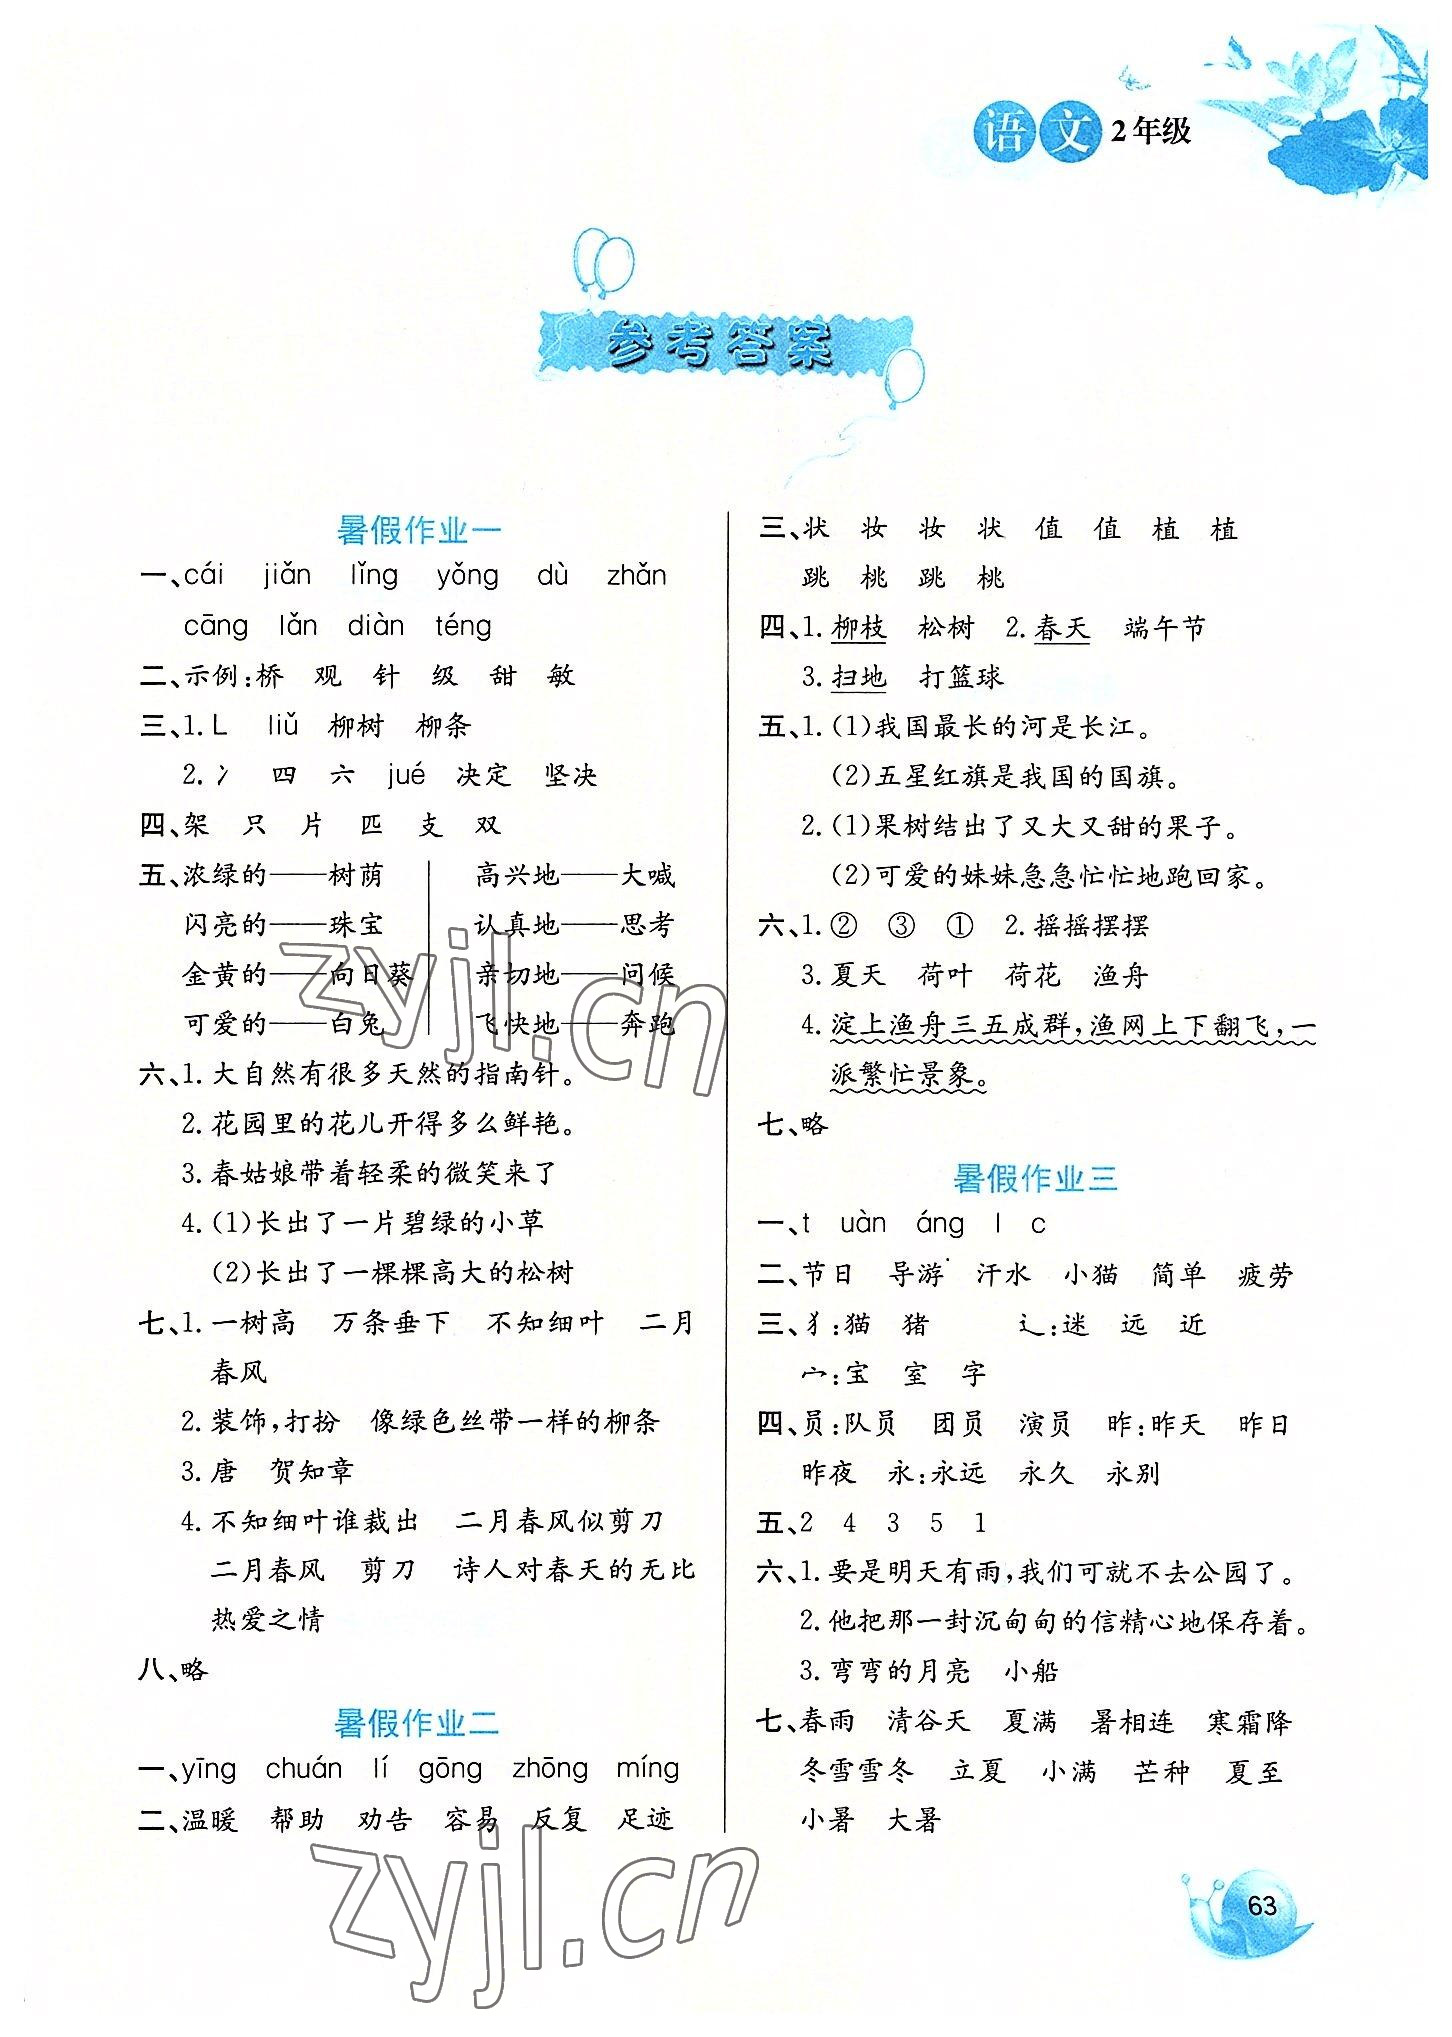 语文 2年级
参考答案
暑假作业一
一、cái jiǎn lǐng yǒng dù zhǎn
cāng lǎn diàn téng
二、示例:桥 观 针 级 甜 敏
三、1. L liǔ 柳树 柳条
2. 冫 四 六 jué 决定 坚决
四、架 只 片 匹 支 双
五、浓绿的——树荫 高兴地——大喊
闪亮的——珠宝 认真地——思考
金黄的——向日葵 亲切地——问候
可爱的——白兔 飞快地——奔跑
六、1. 大自然有很多天然的指南针。
2. 花园里的花儿开得多么鲜艳。
3. 春姑娘带着轻柔的微笑来了
4. (1)长出了一片碧绿的小草
(2)长出了一棵棵高大的松树
七、1. 一树高 万条垂下 不知细叶 二月
春风
2. 装饰,打扮 像绿色丝带一样的柳条
3. 唐 贺知章
4. 不知细叶谁裁出 二月春风似剪刀
二月春风 剪刀 诗人对春天的无比
热爱之情
八、略
暑假作业二
一、yīng chuán lí gōng zhōng míng
二、温暖 帮助 劝告 容易 反复 足迹
三、状 妆 妆 状 值 值 植 植
跳 桃 跳 桃
四、1. 柳枝 松树 2. 春天 端午节
3. 扫地 打篮球
五、1. (1)我国最长的河是长江。
(2)五星红旗是我国的国旗。
2. (1)果树结出了又大又甜的果子。
(2)可爱的妹妹急急忙忙地跑回家。
六、1. ② ③ ① 2. 摇摇摆摆
3. 夏天 荷叶 荷花 渔舟
4. 淀上渔舟三五成群,渔网上下翻飞,一
派繁忙景象。
七、略
暑假作业三
一、t uàn áng l c
二、节日 导游 汗水 小猫 简单 疲劳
三、犭:猫 猪 辶:迷 远 近
宀:宝 室 字
四、员:队员 团员 演员 昨:昨天 昨日
昨夜 永:永远 永久 永别
五、2 4 3 5 1
六、1. 要是明天有雨,我们可就不去公园了。
2. 他把那一封沉甸甸的信精心地保存着。
3. 弯弯的月亮 小船
七、春雨 清谷天 夏满 暑相连 寒霜降
冬雪雪冬 立夏 小满 芒种 夏至
小暑 大暑
63
zyjl.cn
zyjl.cn